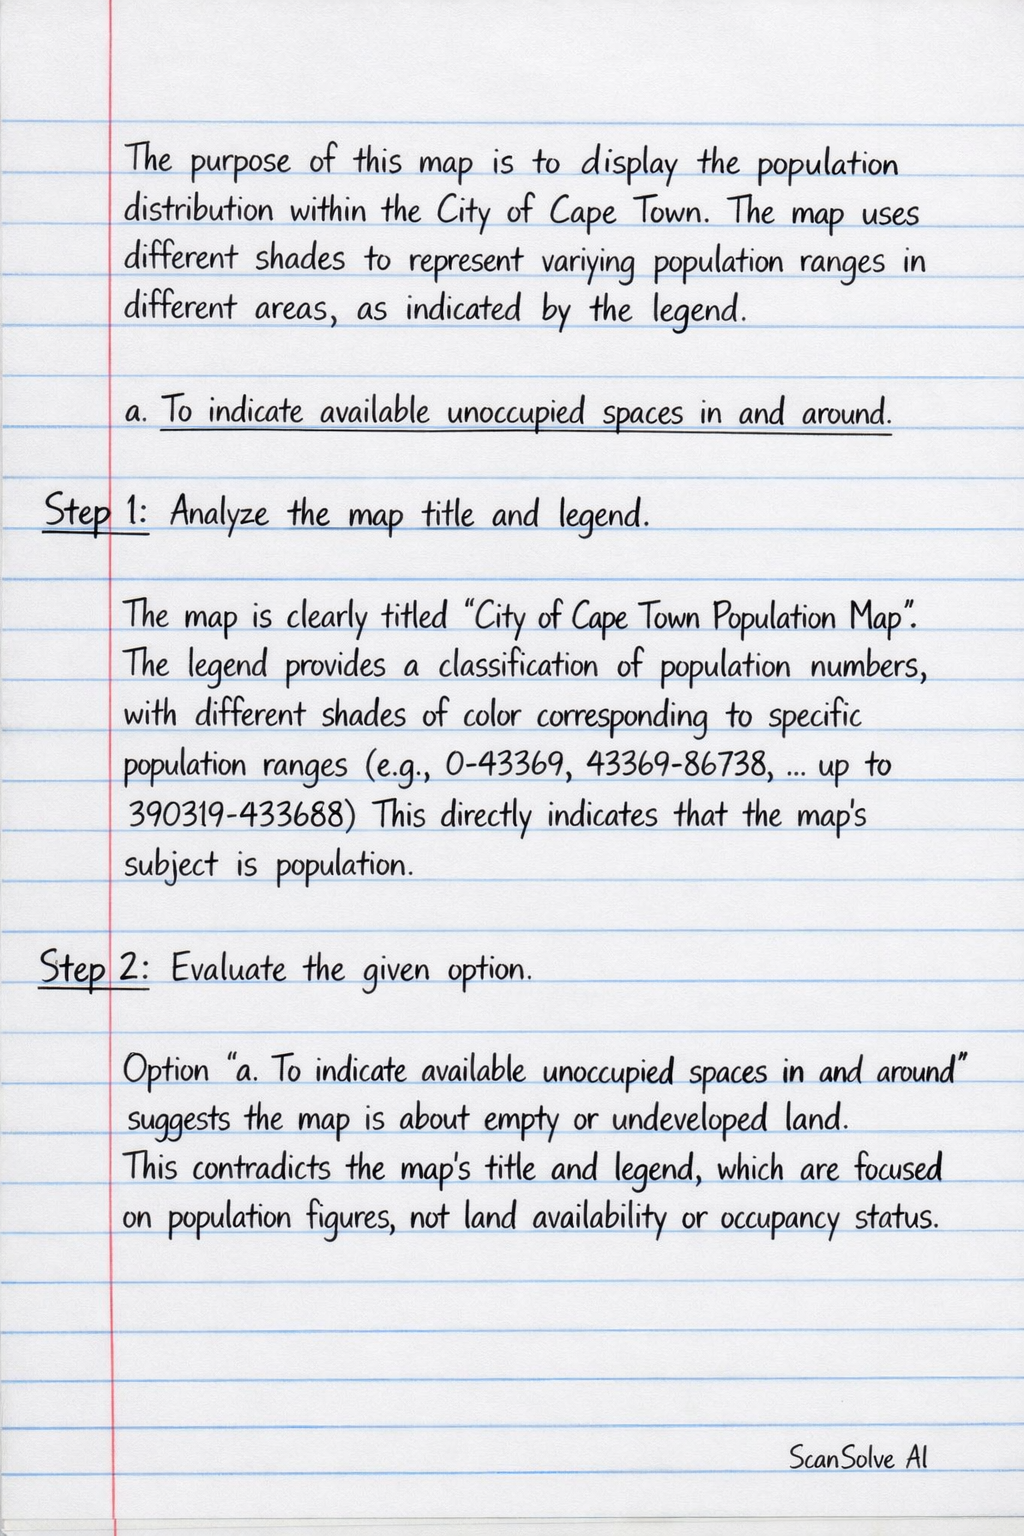 The purpose of this map is to display the population
distribution within the City of Cape Town. The map uses
different shades to represent variying population ranges in
different areas, as indicated by the legend.
a. To indicate available unoccupied spaces in and around.
Step 1: Analyze the map title and legend.
The map is clearly titled “City of Cape Town Population Map”.
The legend provides a classification of population numbers,
with different shades of color corresponding to specific
population ranges (e.g., 0-43369, 43369-86738, ... up to
390319-433688) This directly indicates that the map's
subject is population.
Step 2: Evaluate the given option.
Option “a. To indicate available unoccupied spaces in and around”
suggests the map is about empty or undeveloped land.
This contradicts the map's title and legend, which are focused
on population figures, not land availability or occupancy status.
ScanSolve AI